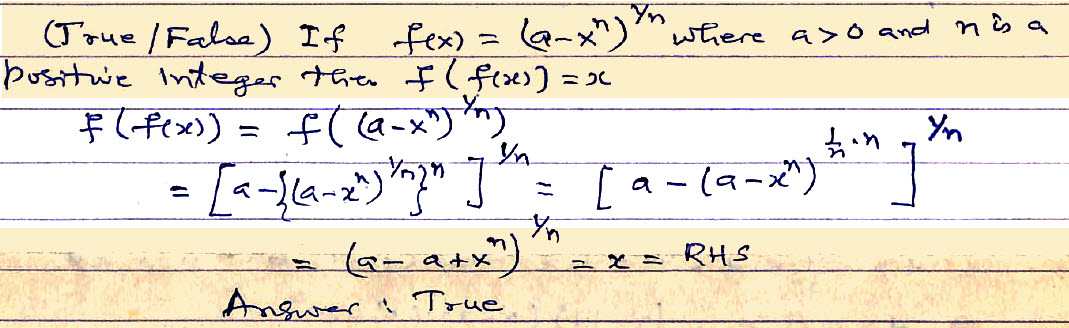 (True/False) If f(x) = (a-xⁿ)^1/n where a>0 and n is a
positive integer then f(f(x)] = x
f(f(x)) = f((a-xⁿ)^1/n)
= [a-{(a-xⁿ)^1/n}ⁿ]^1/n = [a-(a-xⁿ)^1/n·n]^1/n
= (a-a+xⁿ)^1/n = x = RHS
Answer : True